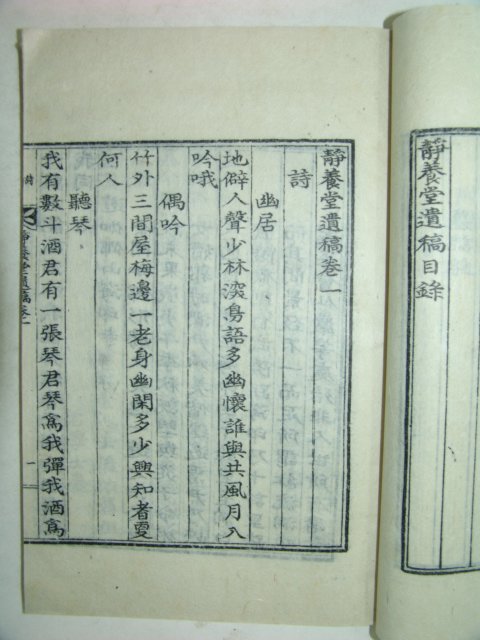 靜養堂遺稿目錄
靜養堂遺稿卷一
詩
幽居
地僻人聲少林深鳥語多幽懷誰與共風月入
吟哦
偶吟
竹外三間屋梅邊一老身幽閑多少興知者更
何人
聽琴
我有數斗酒君有一張琴君琴爲我彈我酒爲
靜養堂遺稿卷一
一